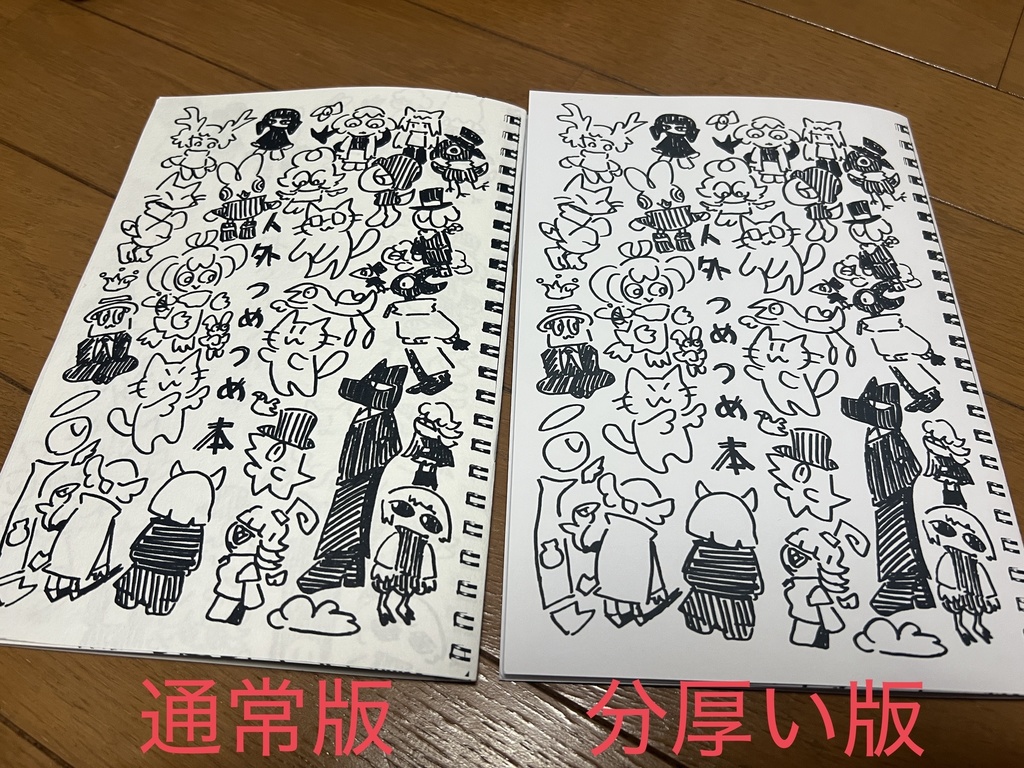 人外つめつめ本
人外つめつめ本
通常版
分厚い版